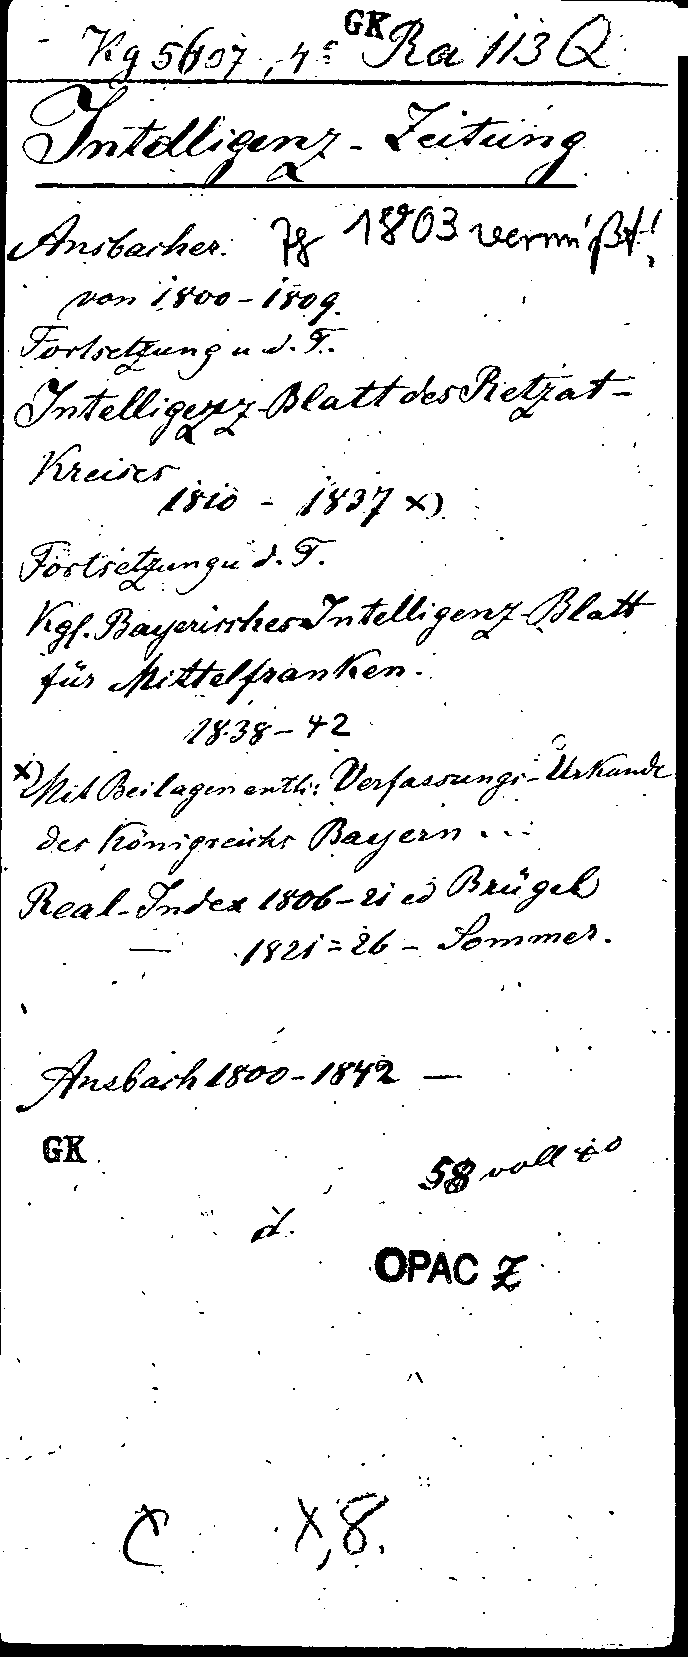 GK
Kg 5607, 4° Ra 113 Q
Intelligenz-Zeitung
Ansbacher. Jg 1803 vermißt!
von 1800-1809.
Fortsetzung u. d. T.
Intelligenz-Blatt des Retzat-
Kreises
1810 - 1837 x)
Fortsetzung u d. T.
Kgl. Bayerisches Intelligenz-Blatt
für Mittelfranken.
1838-42
x) Mit Beilagen enth: Verfassungs-Urkunde
des Königreichs Bayern ...
Real-Index 1806-21 ed Brügel
— 1821=26 - Sommer.
Ansbach 1800-1842 —
GK
58 voll 4°
d.
OPAC Z
x, 8.